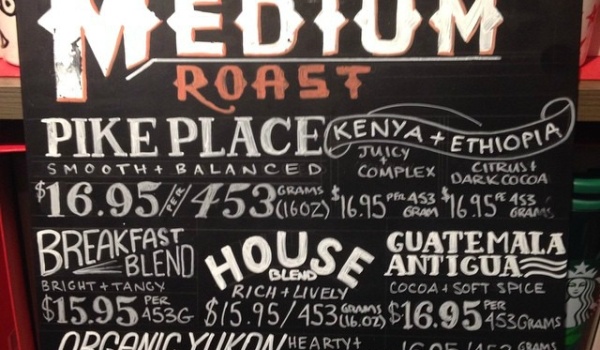 MEDIUM
ROAST
PIKE PLACE
SMOOTH + BALANCED
$16.95/PER/453 GRAMS (16OZ)
KENYA + ETHIOPIA
JUICY + COMPLEX
$16.95 PER 453 GRAM
CITRUS & DARK COCOA
$16.95 PE 453 GRAMS
BREAKFAST
BLEND
BRIGHT + TANGY
$15.95 PER 453G
HOUSE
BLEND
RICH + LIVELY
$15.95/453 GRAMS (16.OZ)
GUATEMALA
ANTIGUA
COCOA + SOFT SPICE
$16.95 PER 453 GRAMS
ORGANIC YUKON HEARTY +